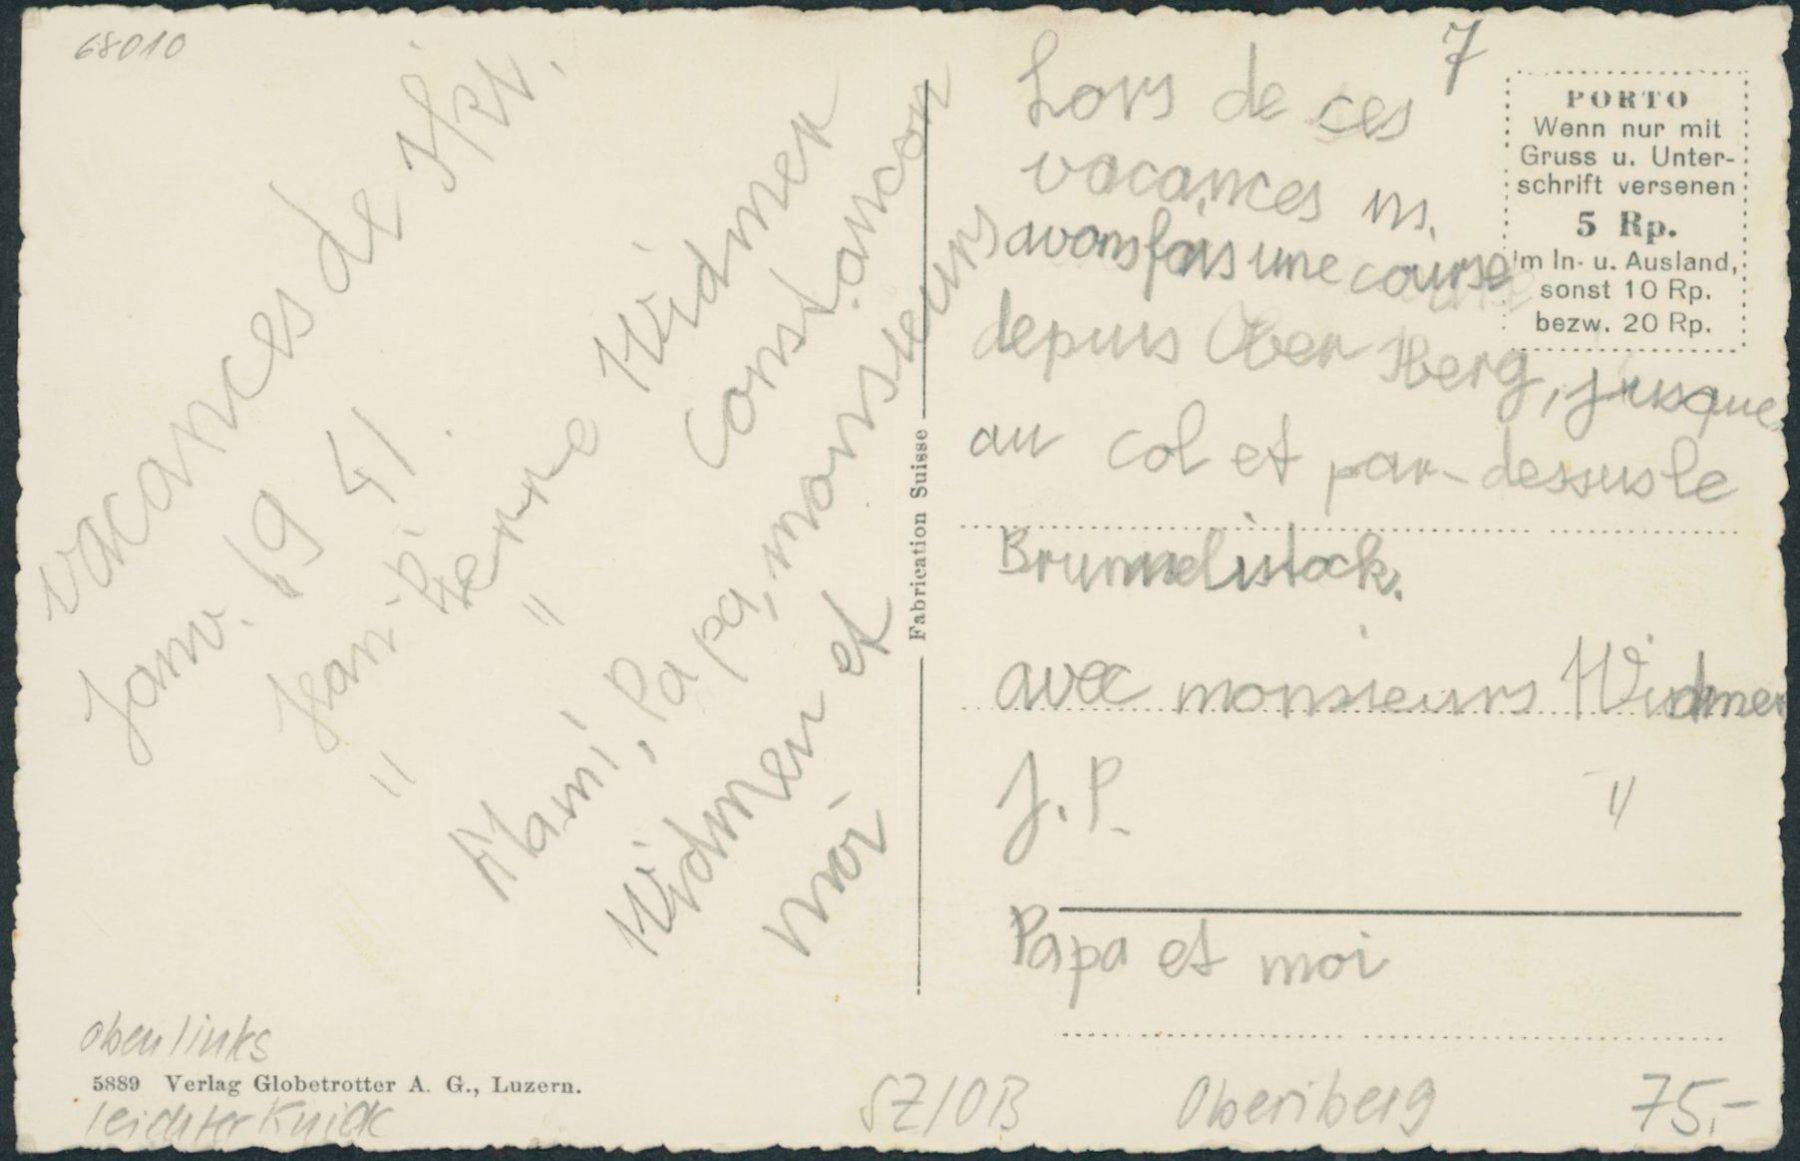 68010
vacances de
Janv. 1941.
Jean Pierre Widmer
" " Constançon
Mami, Papa, monsieurs
Widmer et
moi
oben links
5889 Verlag Globetrotter A. G., Luzern.
leichter Knick
Fabrication Suisse
7
Lors de ces
vacances ns.
avons fais une course
depuis Ober Iberg, jusque
au col et par-dessus le
Brunnelistock.
avec monsieurs Widmer
J. P. "
Papa et moi
PORTO
Wenn nur mit
Gruss u. Unter-
schrift versenen
5 Rp.
im In- u. Ausland,
sonst 10 Rp.
bezw. 20 Rp.
SZ/OB Oberiberg 75.-